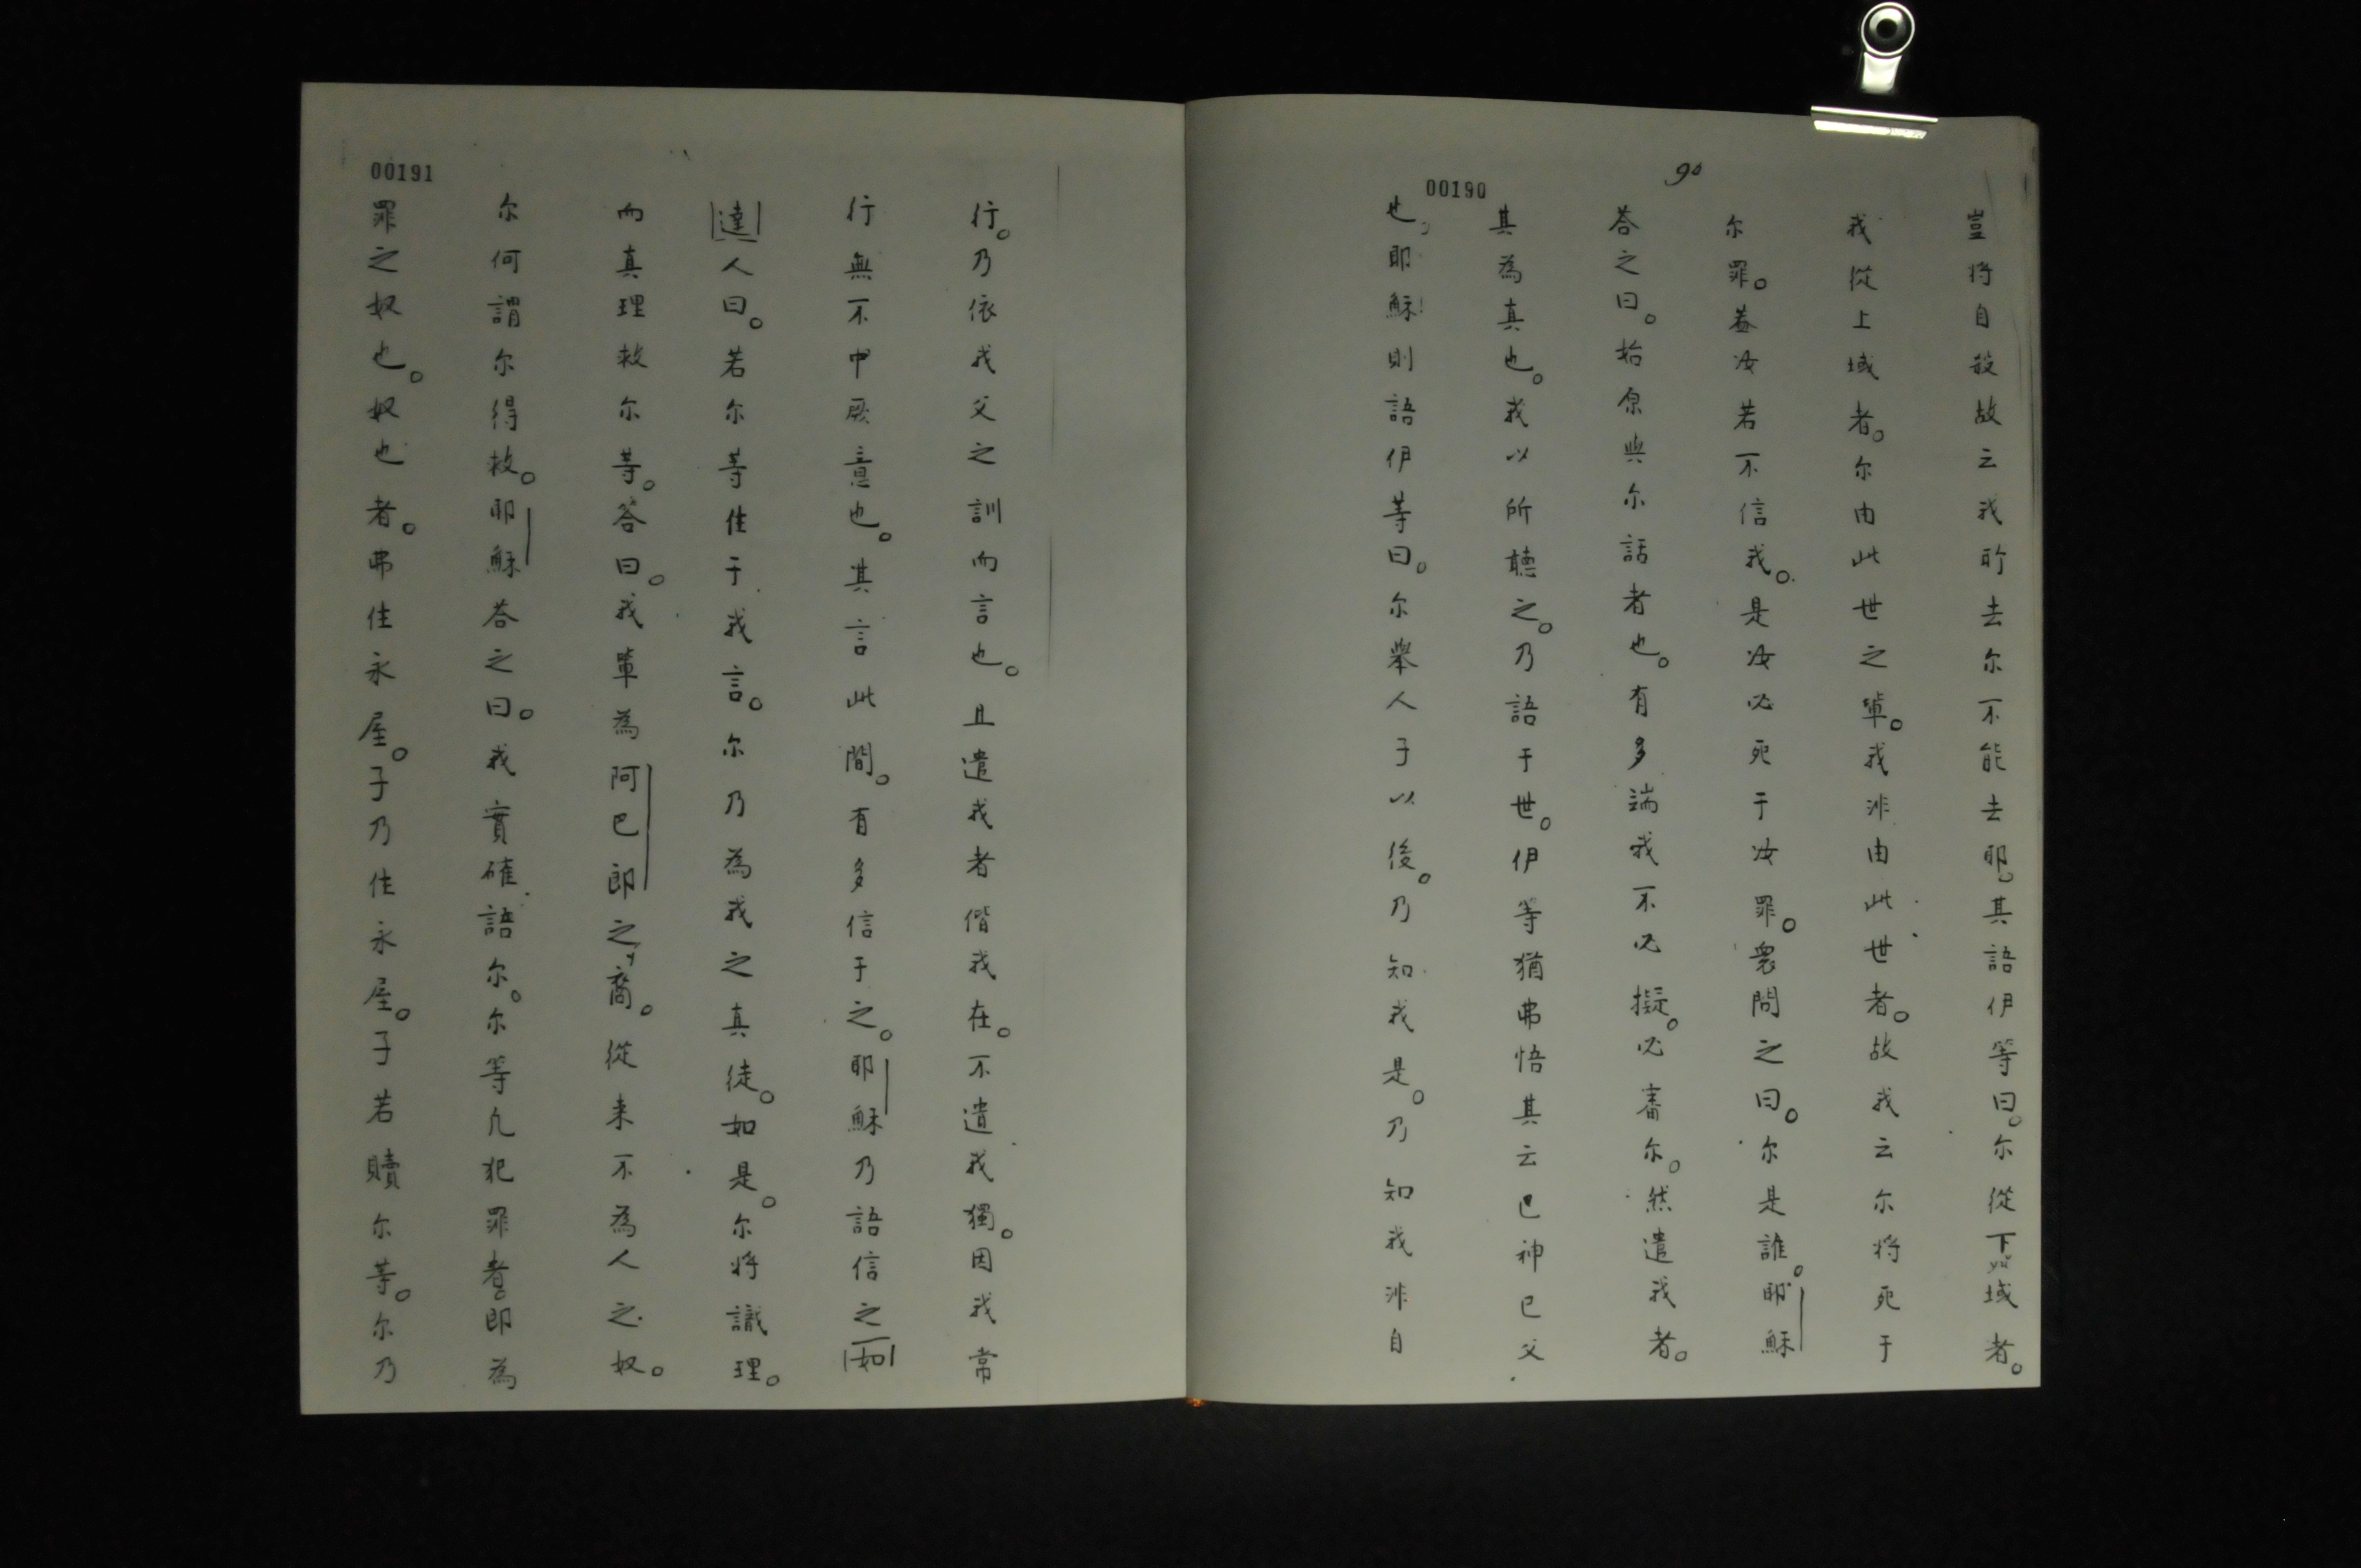 90
00190
豈將自殺故云我所去尔不能去耶。其語伊等曰。尔從下域者。
我從上域者。尔由此世之輩。我非由此世者。故我云尔將死于
尔罪。蓋汝若不信我。是汝必死于汝罪。衆問之曰。尔是誰。耶穌
答之曰。始原與尔話者也。有多端我不必擬。必審尔。然遣我者。
其為真也。我以所聽之。乃語于世。伊等猶弗悟其云已神已父
也。耶穌則語伊等曰。尔舉人子以後。乃知我是。乃知我非自
00191
行。乃依我父之訓而言也。且遣我者偕我在。不遺我獨。因我常
行無不中厥意也。其言此間。有多信于之。耶穌乃語信之如
達人曰。若尔等住于我言。尔乃為我之真徒。如是。尔將識理。
而真理救尔等。答曰。我輩為阿巴郎之裔。從来不為人之奴。
尔何謂尔得救。耶穌答之曰。我實確語尔。尔等凢犯罪者。即為
罪之奴也。奴也者。弗住永屋。子乃住永屋。子若贖尔等。尔乃